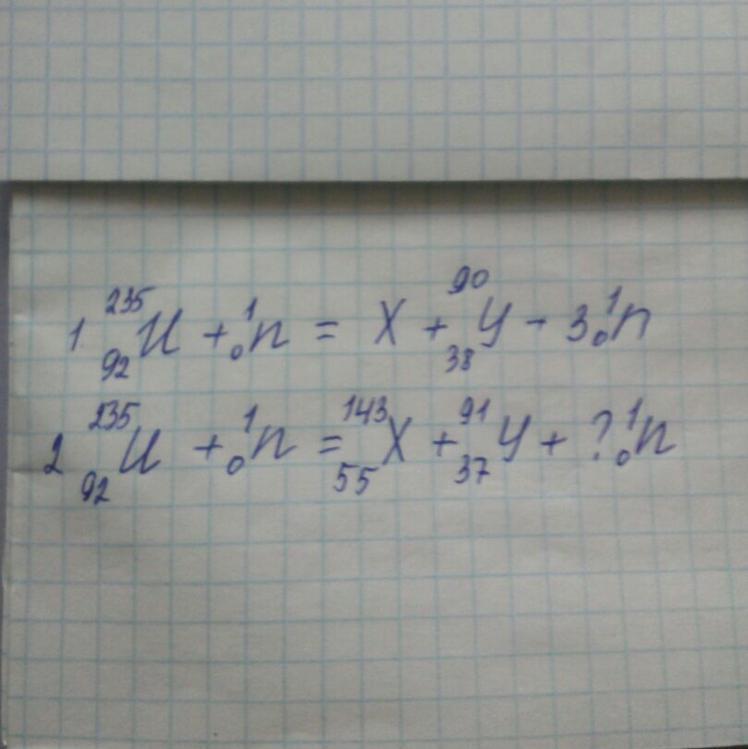 1 ²³⁵₉₂U + ¹₀n = X + ⁹⁰₃₈Y - 3 ¹₀n
2 ²³⁵₉₂U + ¹₀n = ¹⁴³₅₅X + ⁹¹₃₇Y + ? ¹₀n